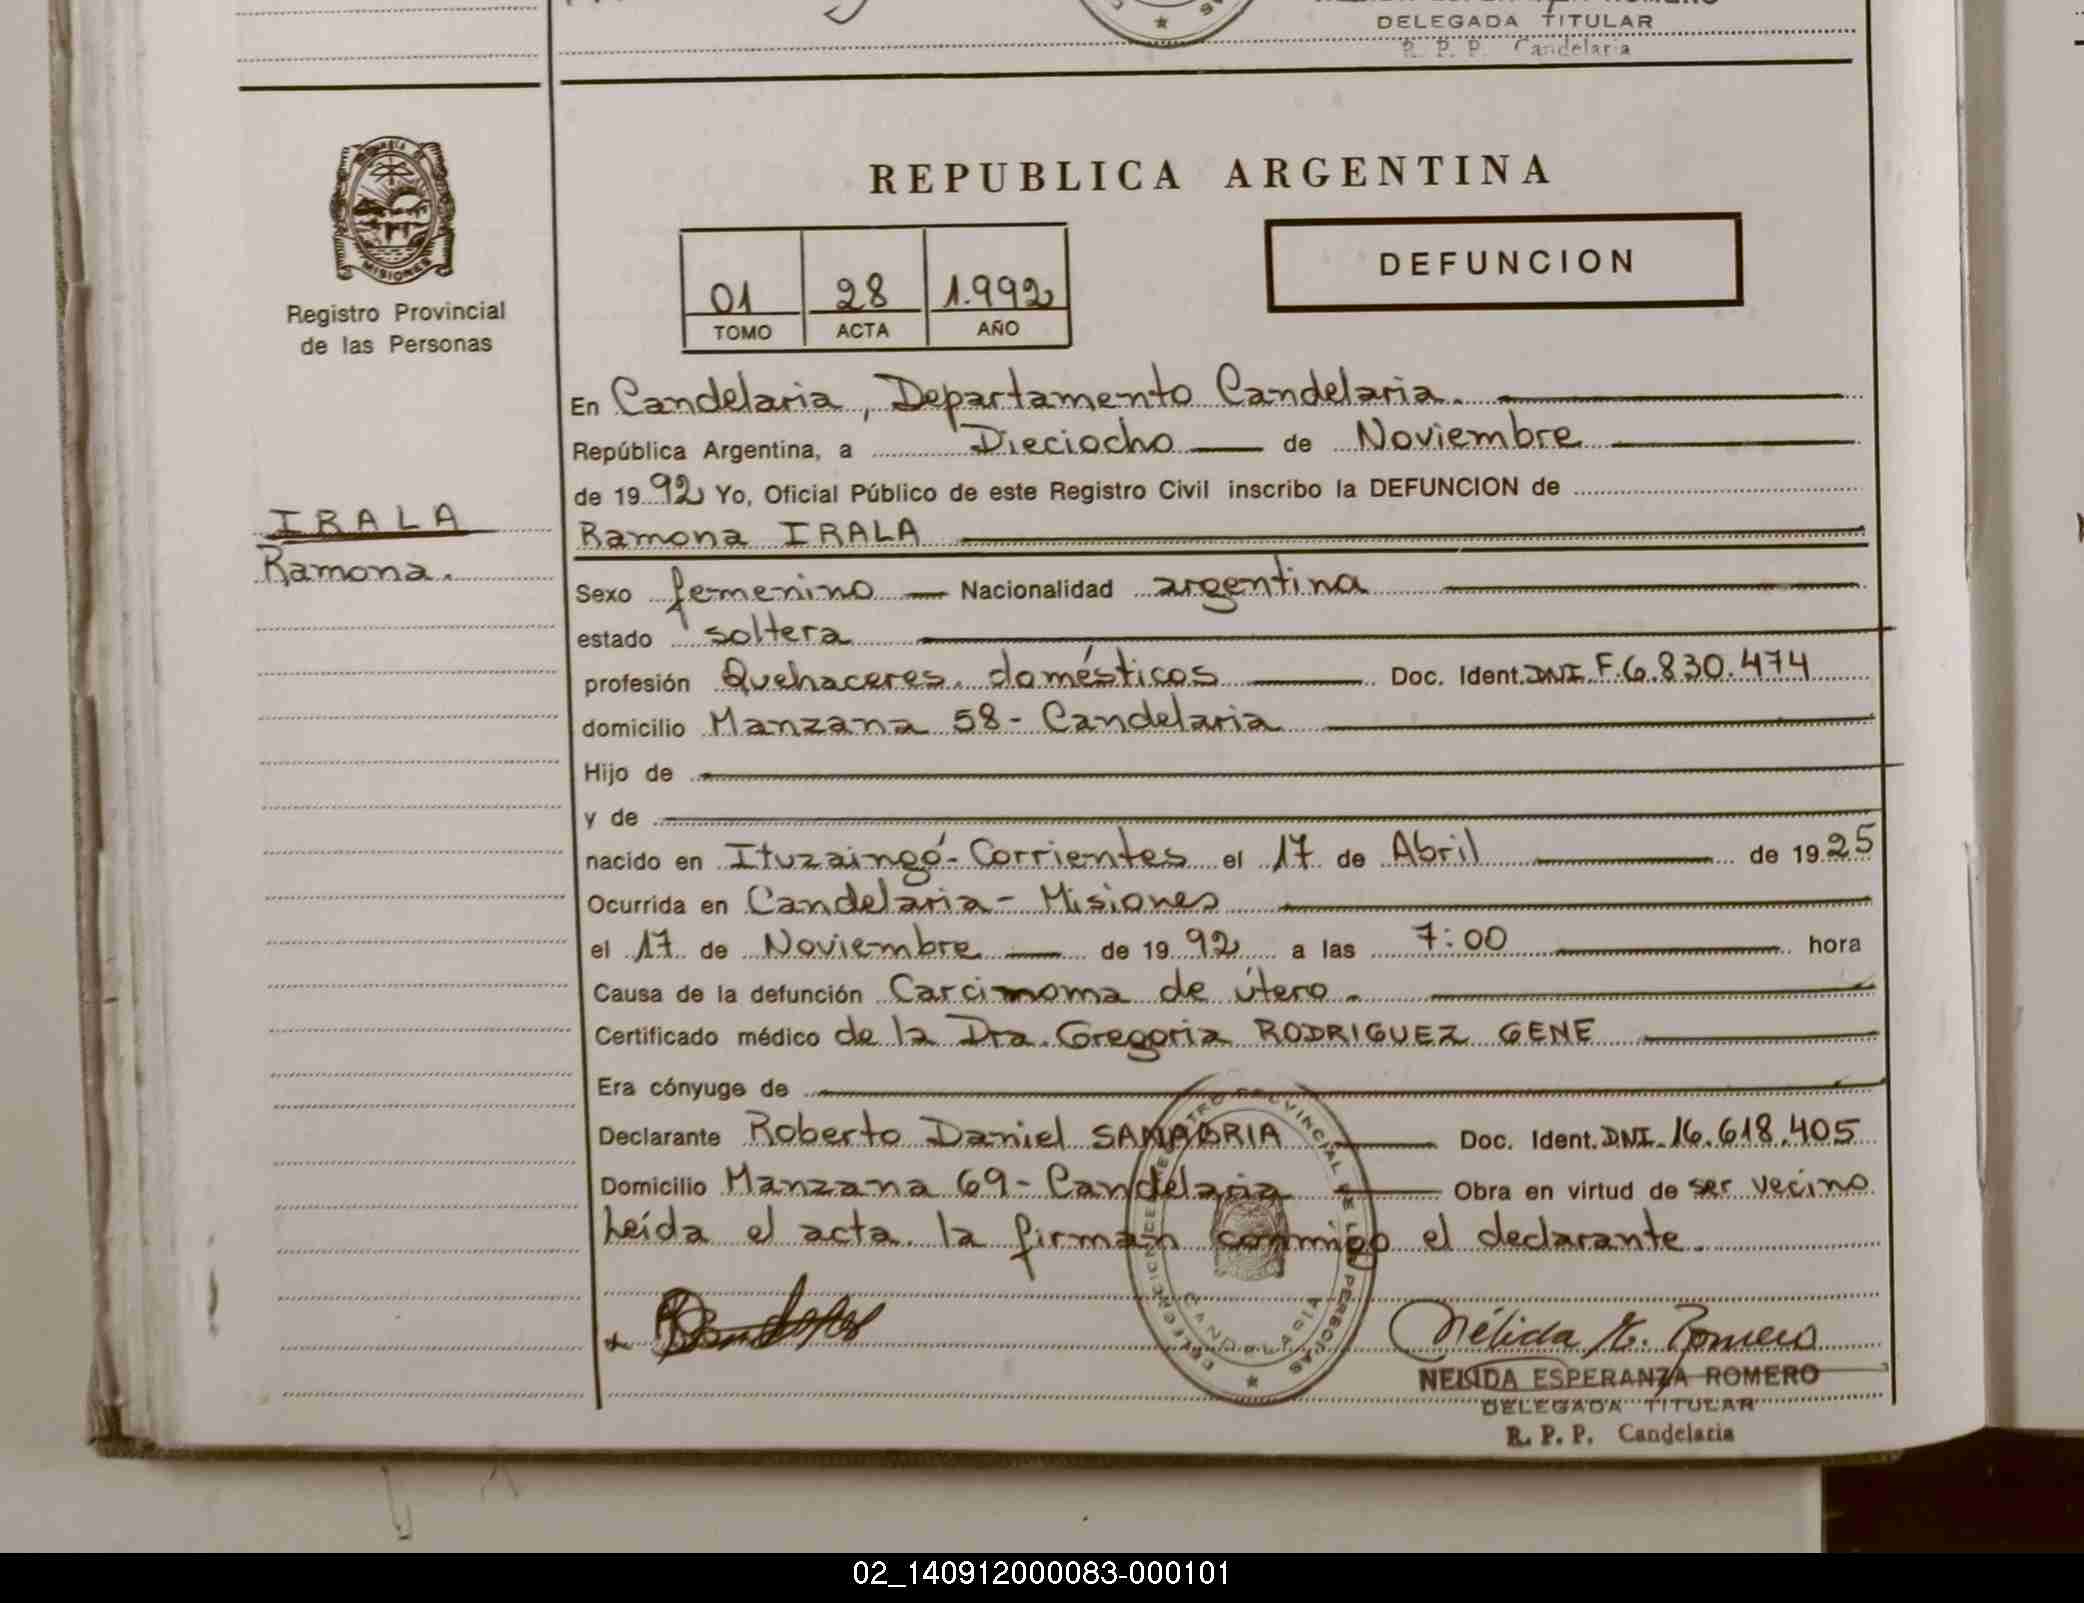 DELEGADA TITULAR
R. P. P. Candelaria
MISIONES
Registro Provincial
de las Personas
REPUBLICA ARGENTINA
DEFUNCION
01 28 1.992
TOMO ACTA AÑO
En Candelaria, Departamento Candelaria.
República Argentina, a Dieciocho de Noviembre
de 1992 Yo, Oficial Público de este Registro Civil inscribo la DEFUNCION de
IRALA
Ramona.
Ramona IRALA
Sexo femenino Nacionalidad argentina
estado soltera
profesión Quehaceres domésticos Doc. Ident. DNI F.6.830.474
domicilio Manzana 58 - Candelaria
Hijo de
y de
nacido en Ituzaingó - Corrientes el 17 de Abril de 1925
Ocurrida en Candelaria - Misiones
el 17 de Noviembre de 1992 a las 7:00 hora
Causa de la defunción Carcinoma de útero.
Certificado médico de la Dra. Gregoria RODRIGUEZ GENE
Era cónyuge de
Declarante Roberto Daniel SANABRIA Doc. Ident. DNI 16.618.405
Domicilio Manzana 69 - Candelaria Obra en virtud de ser vecino
Leída el acta la firman conmigo el declarante.
REGISTRO PROVINCIAL DE LAS PERSONAS
CANDELARIA
Nélida E. Romero
NELIDA ESPERANZA ROMERO
DELEGADA TITULAR
R. P. P. Candelaria
02_140912000083-000101